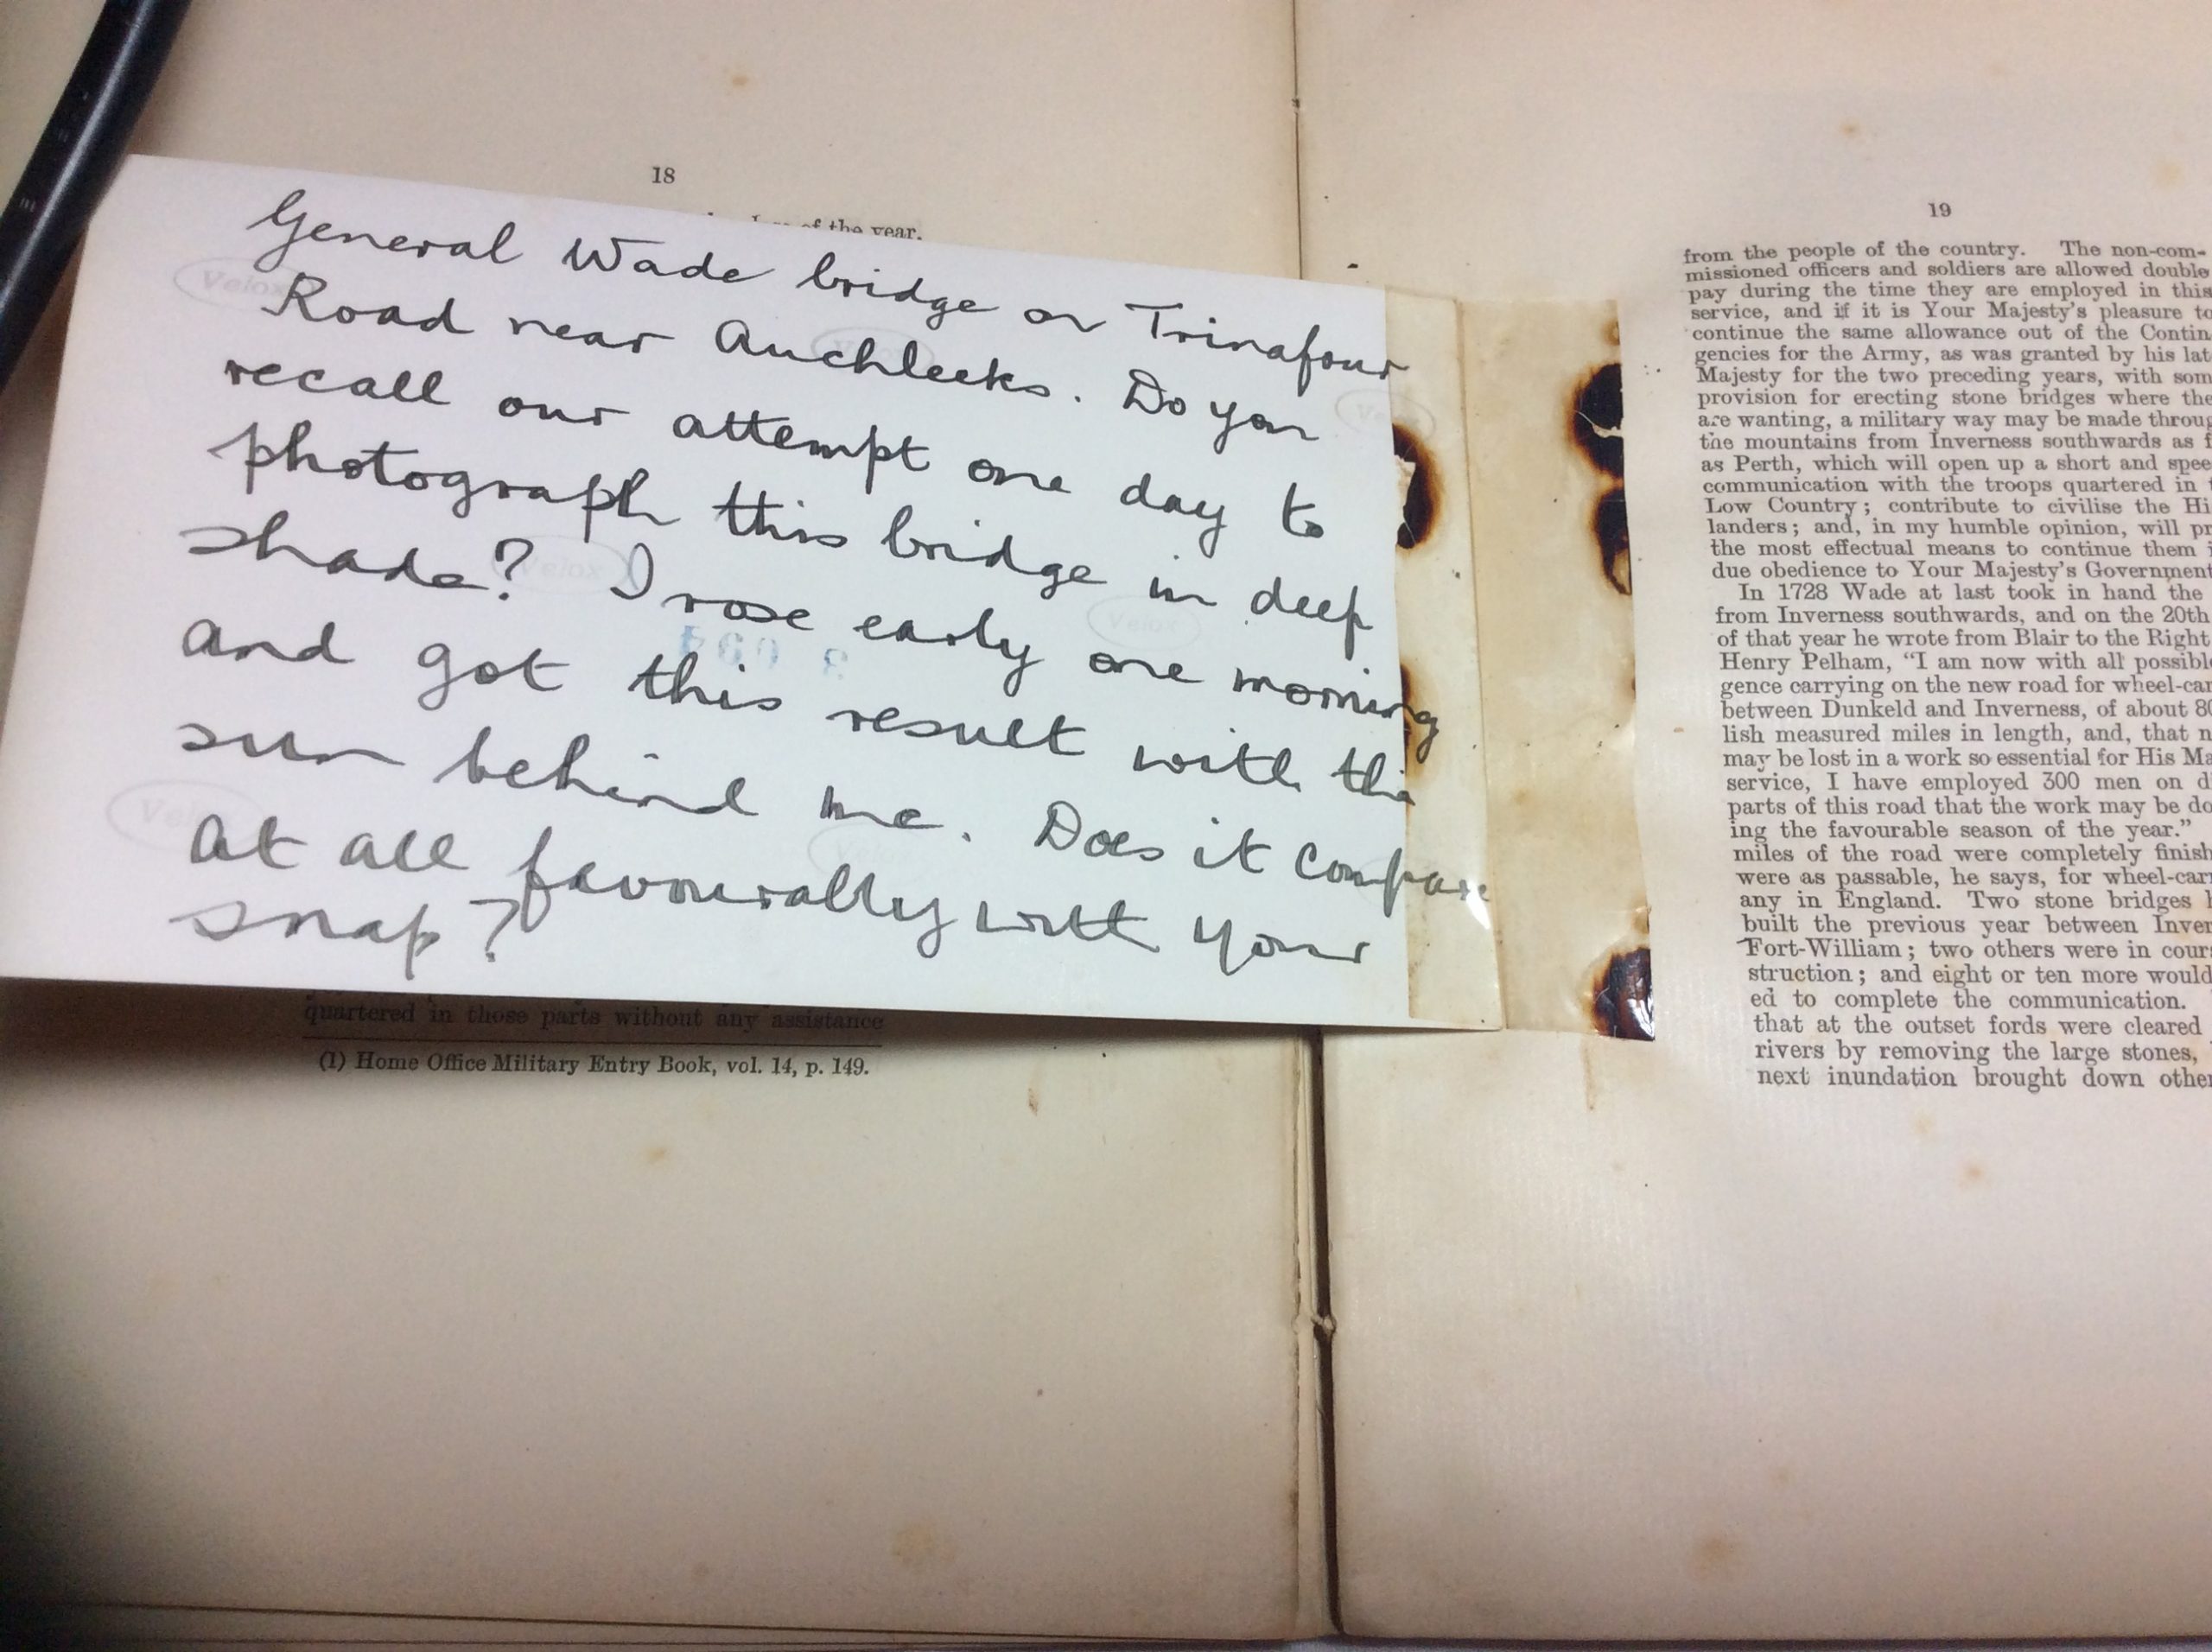 18
of the year.
General Wade bridge on Trinafour
Road near Auchleeks. Do you
recall our attempt one day to
photograph this bridge in deep
shade? I rose early one morning
and got this result with the
sun behind me. Does it compare
at all favourably with your
snap?
Velox
Velox
Velox
Velox
Velox
quartered in those parts without any assistance
(1) Home Office Military Entry Book, vol. 14, p. 149.
19
from the people of the country. The non-com-
missioned officers and soldiers are allowed double
pay during the time they are employed in this
service, and if it is Your Majesty's pleasure to
continue the same allowance out of the Contin
gencies for the Army, as was granted by his lat
Majesty for the two preceding years, with som
provision for erecting stone bridges where the
are wanting, a military way may be made throug
the mountains from Inverness southwards as f
as Perth, which will open up a short and spee
communication with the troops quartered in t
Low Country; contribute to civilise the Hi
landers; and, in my humble opinion, will pr
the most effectual means to continue them i
due obedience to Your Majesty's Government
In 1728 Wade at last took in hand the
from Inverness southwards, and on the 20th
of that year he wrote from Blair to the Right
Henry Pelham, "I am now with all possible
gence carrying on the new road for wheel-car
between Dunkeld and Inverness, of about 80
lish measured miles in length, and, that n
may be lost in a work so essential for His Ma
service, I have employed 300 men on d
parts of this road that the work may be do
ing the favourable season of the year."
miles of the road were completely finish
were as passable, he says, for wheel-carr
any in England. Two stone bridges h
built the previous year between Inver
Fort-William; two others were in cour
struction; and eight or ten more would
ed to complete the communication.
that at the outset fords were cleared
rivers by removing the large stones,
next inundation brought down other